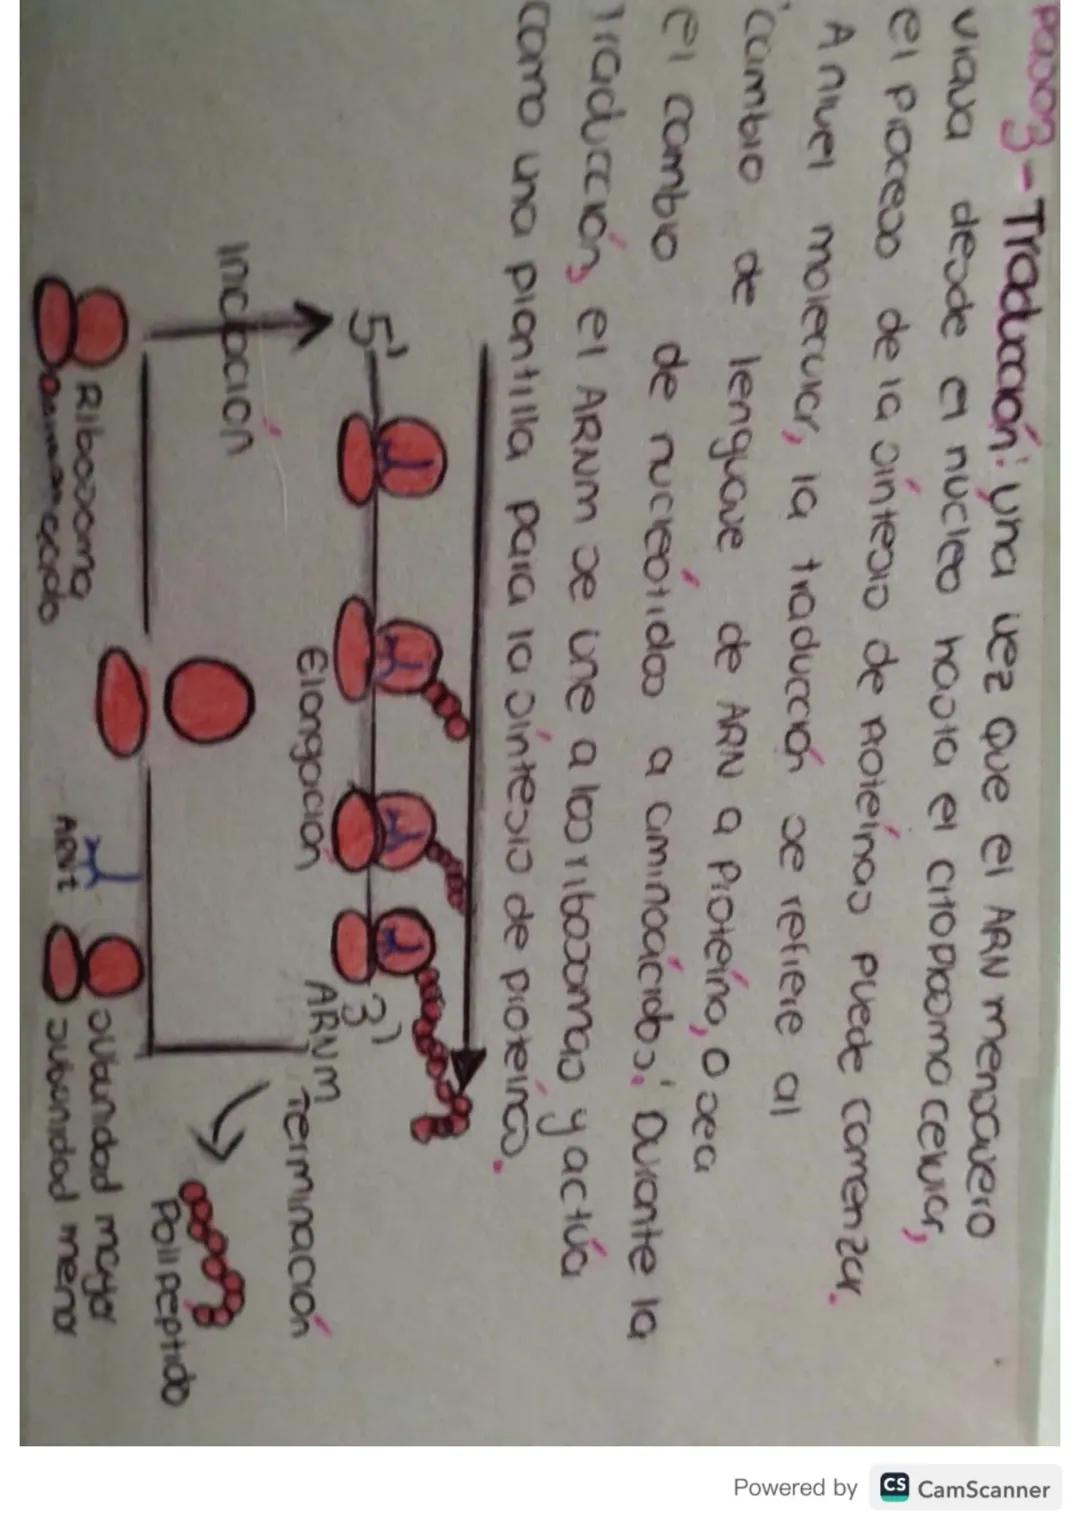 Paso 3 - Traducción: una vez que el ARN mensajero
viaja desde el núcleo hasta el citoplasma celular,
el proceso de la síntesis de Proteínas puede comenzar.
A nivel molecular, la traducción se refiere al
cambio de lenguaje de ARN a Proteína, o sea
el cambio de nucleótidos a aminoácidos. Durante la
Traducción, el ARNm se une a los ribosomas y actúa
como una plantilla para la síntesis de proteínas.
5'
3'
ARNm
Elongación
Terminación
Iniciación
Polipeptido
Ribosoma
ARNt
subunidad mayor
subunidad menor
Powered by CS CamScanner